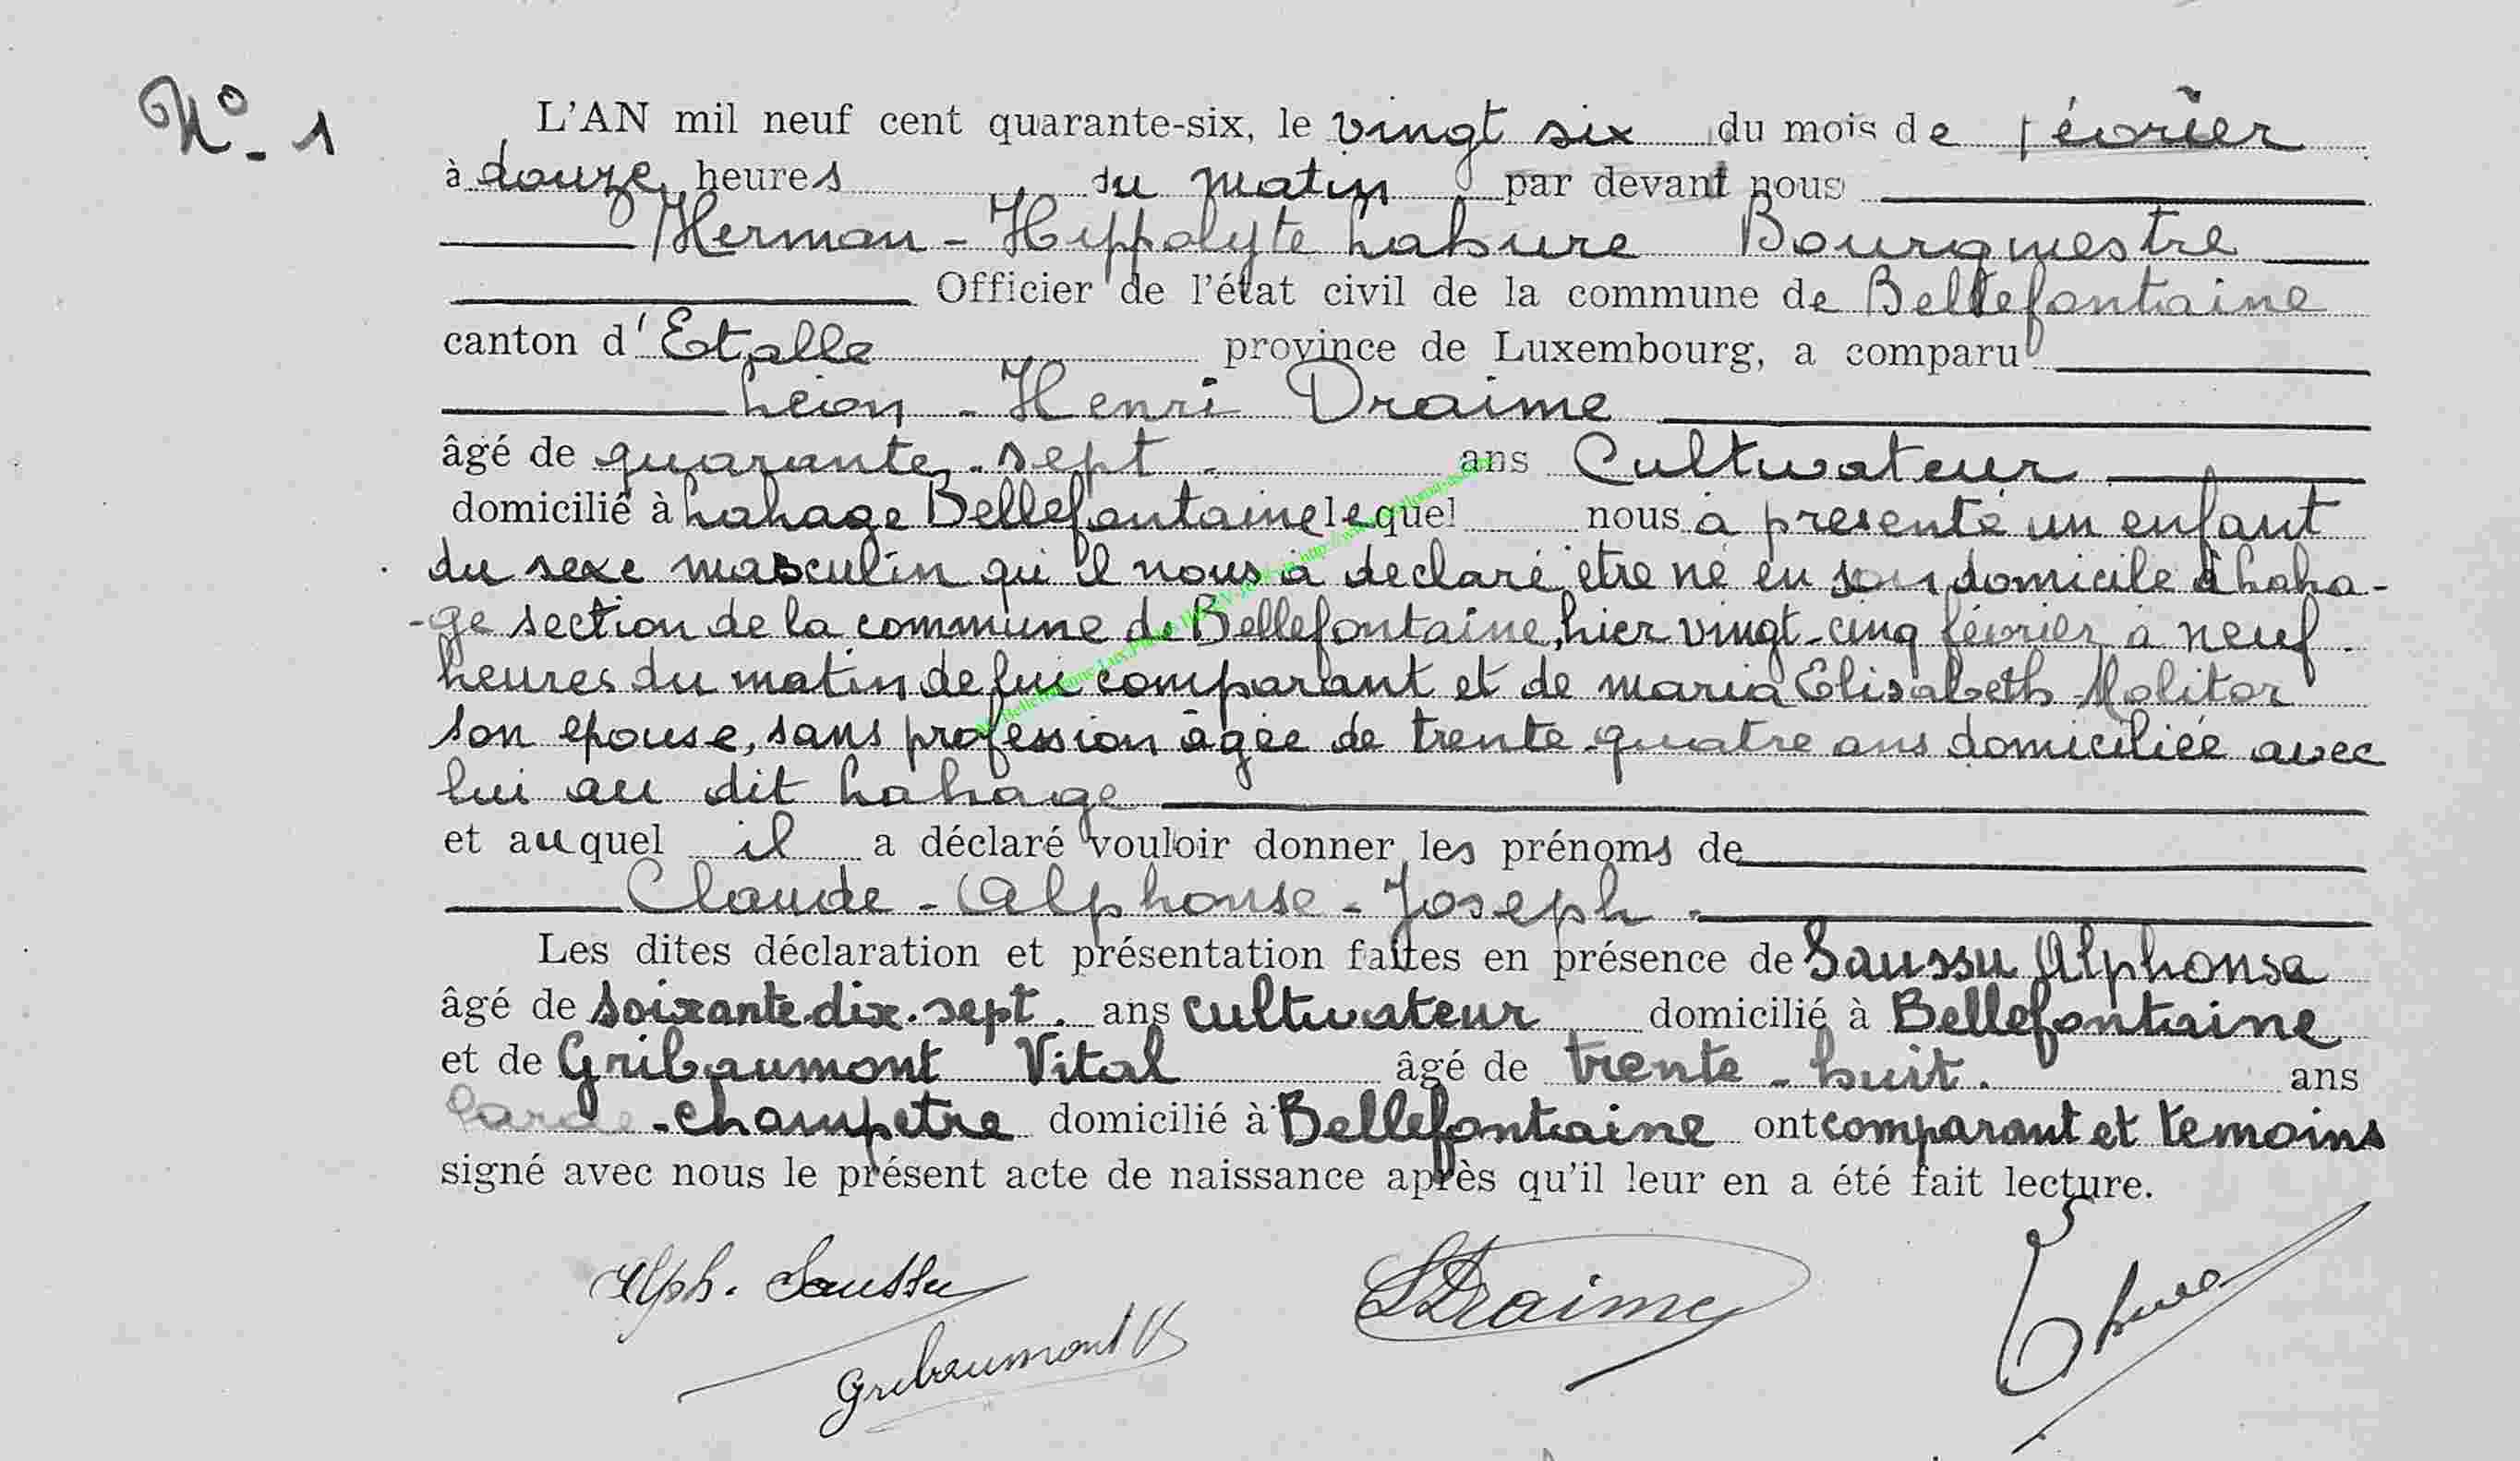 N° 1
L'AN mil neuf cent quarante-six, le vingt six du mois de février
à douze heures du matin par devant nous
Herman - Hippolyte Labure Bourgmestre
Officier de l'état civil de la commune de Bellefontaine
canton d'Etalle province de Luxembourg, a comparu
Léon - Henri Draime
âgé de quarante-sept ans Cultivateur
domicilié à Lahage Bellefontaine lequel nous à présenté un enfant
du sexe masculin qu'il nous à declaré être né en son domicile à Laha-
-ge section de la commune de Bellefontaine, hier vingt-cinq février à neuf
heures du matin de lui comparant et de maria Elisabeth Molitor
son epouse, sans profession âgée de trente-quatre ans domiciliée avec
lui au dit Lahage
et auquel il a déclaré vouloir donner les prénoms de
Claude - Alphonse - Joseph -
Les dites déclaration et présentation faites en présence de Saussu Alphonse
âgé de soixante-dix-sept. ans cultivateur domicilié à Bellefontaine
et de Gribaumont Vital âgé de trente-huit. ans
Garde-champetre domicilié à Bellefontaine ont comparant et temoins
signé avec nous le présent acte de naissance après qu'il leur en a été fait lecture.
Alph. Saussu
Gribaumont V
LDraime